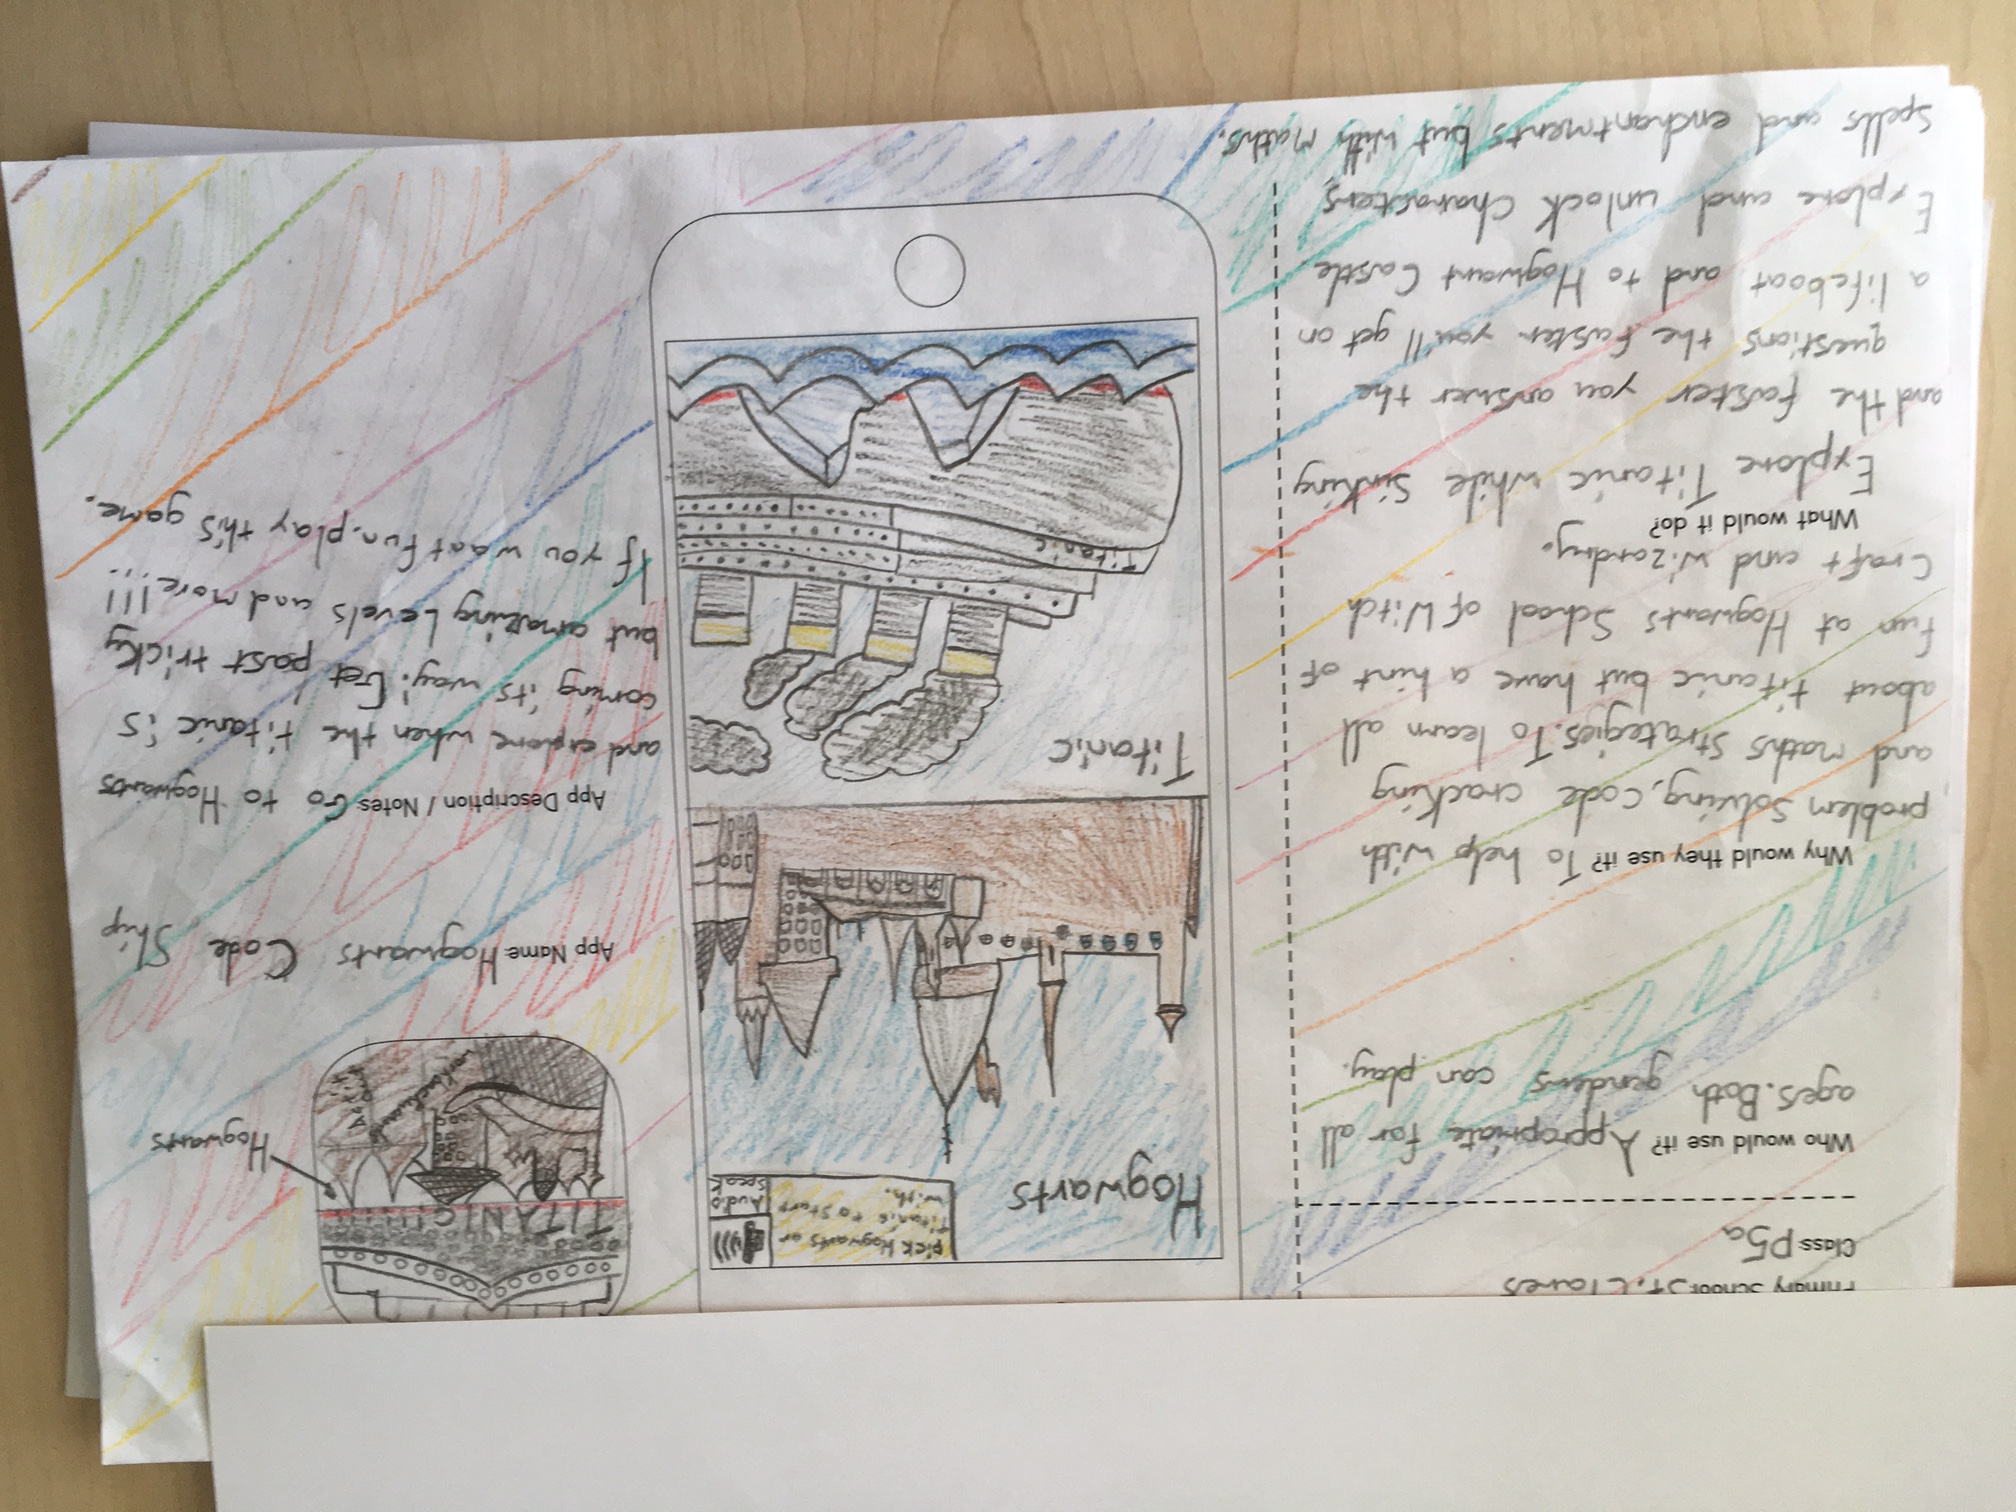 Primary School: St. Clares
Class: P5a
Who would use it? Appropriate for all
ages. Both genders can play.
Why would they use it? To help with
problem solving, code cracking
and maths strategies. To learn all
about titanic but have a hint of
fun at Hogwarts School of Witch
Craft and wizardry.
What would it do?
Explore Titanic while Sinking
and the faster you answer the
questions the faster you'll get on
a lifeboat and to Hogwart Castle
Explore and unlock Charasters,
Spells and enchantments but with maths.
Hogwarts
pick Hogwarts or
titanic to start
with.
Audio
Speak
Titanic
Titanic
TITANIC
Hogwarts
App Name: Hogwarts Code Ship
App Description / Notes Go to Hogwarts
and explore when the titanic is
coming its way! Get past tricky
but amazing Levels and more!!!
If you want fun, play this game.